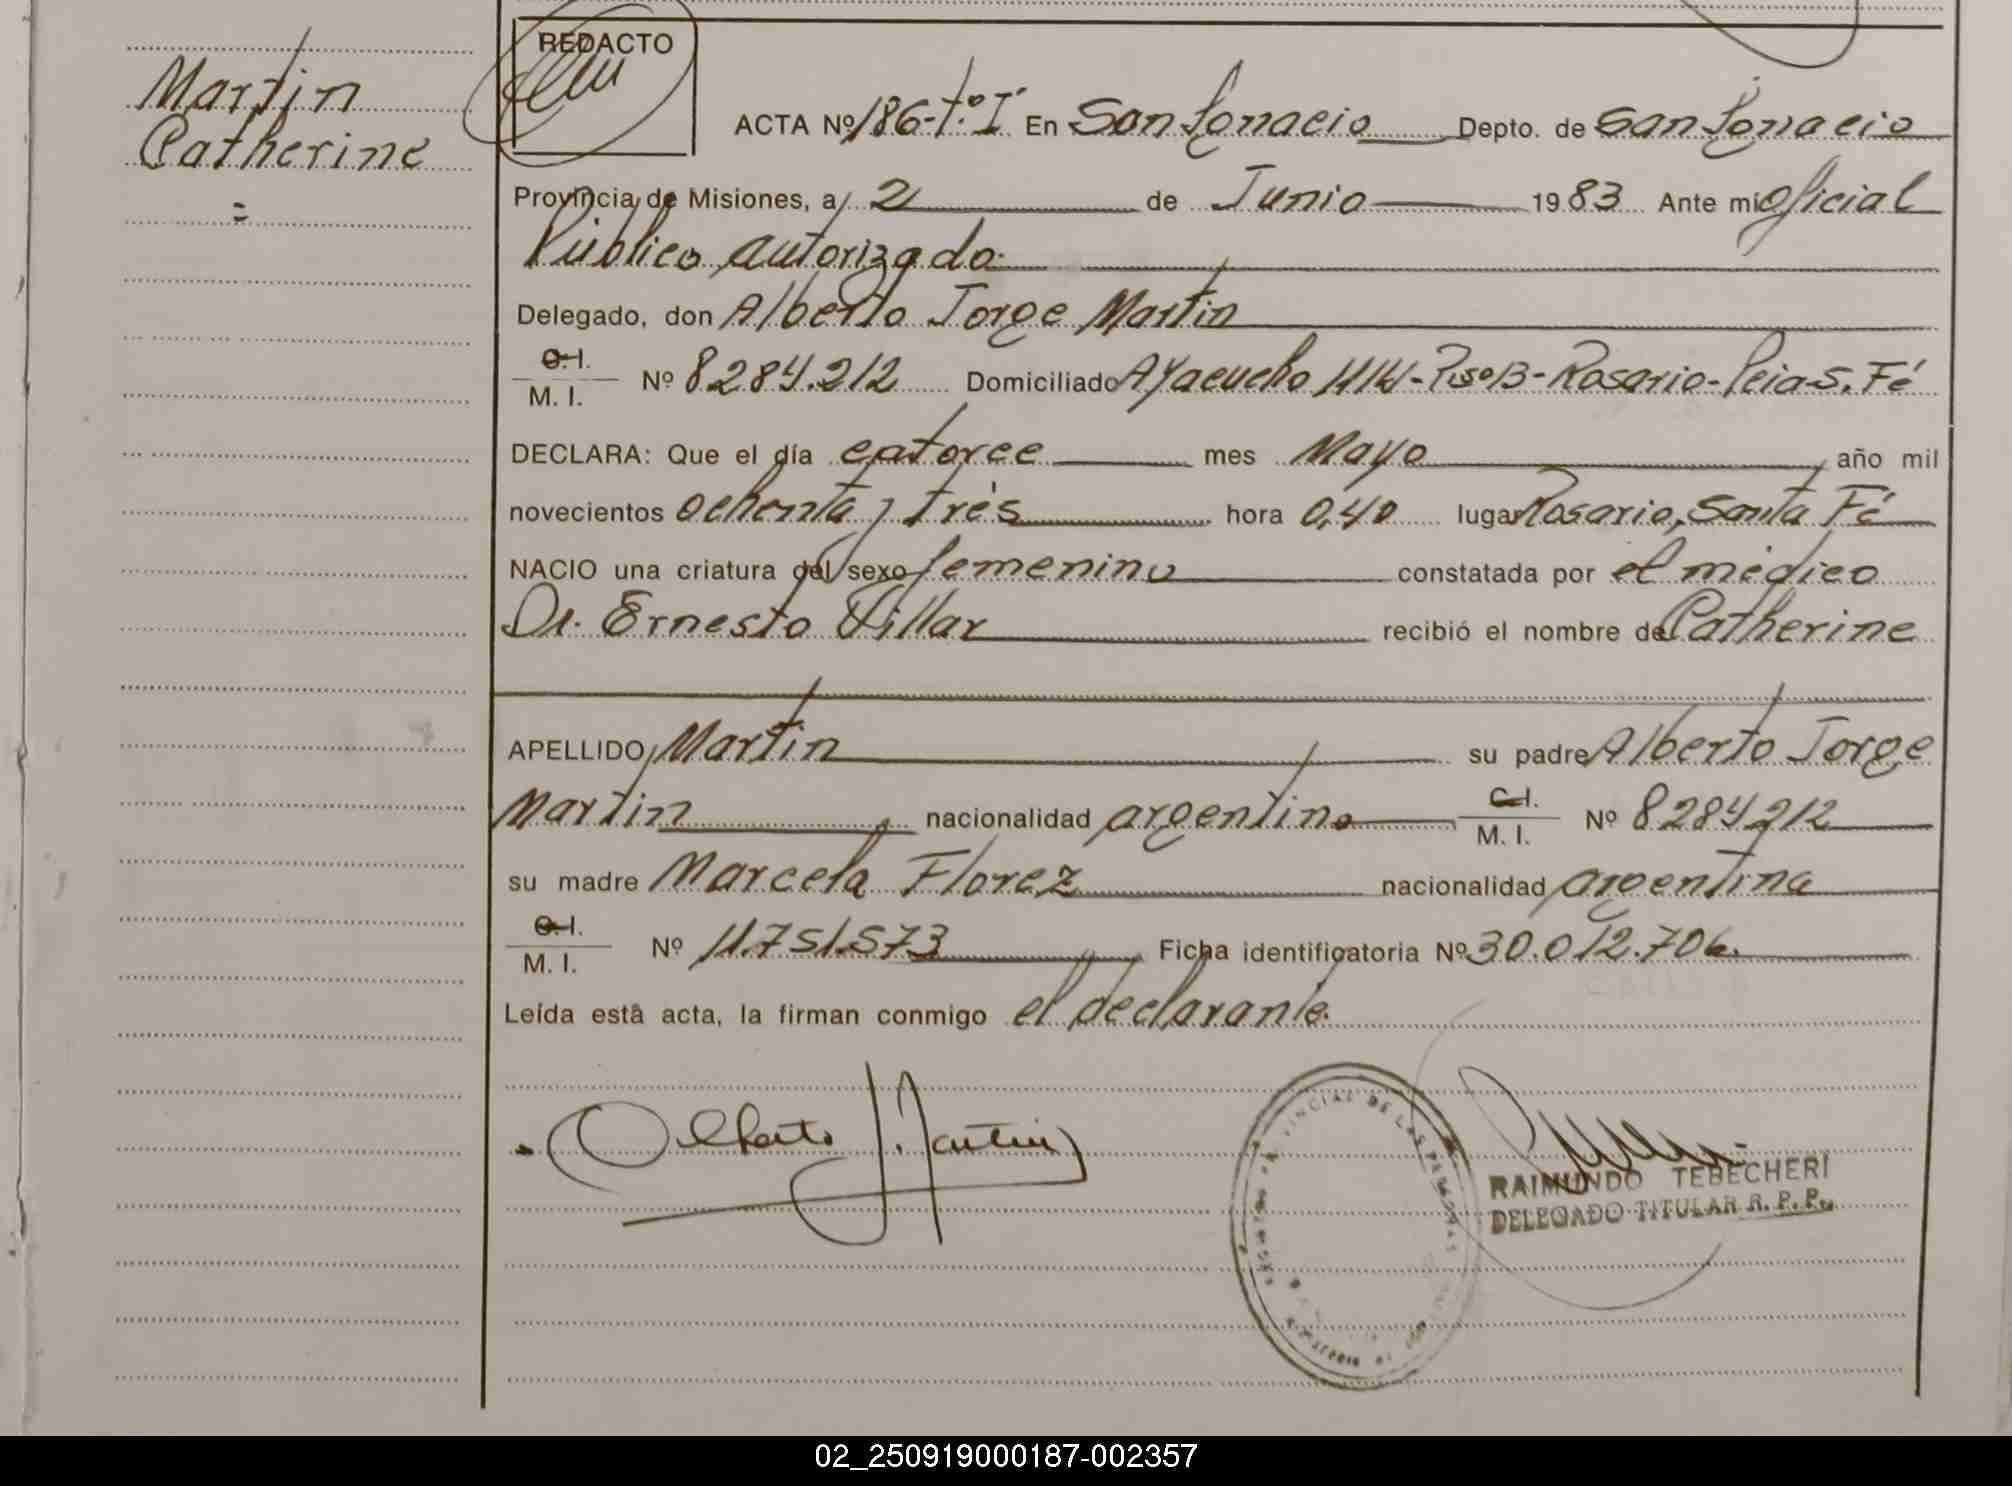 Martin
Catherine
=
REDACTO
ACTA Nº 186-Tº I En San Ignacio Depto. de San Ignacio
Provincia de Misiones, a 2 de Junio 1983 Ante mi oficial
Público autorizado.
Delegado, don Alberto Jorge Martin
C.I.
M. I. Nº 8284.212 Domiciliado Ayacucho 1414-Piso 13-Rosario-Pcia S. Fé
DECLARA: Que el día catorce mes Mayo año mil
novecientos ochenta y trés hora 0,40 lugar Rosario, Santa Fé
NACIO una criatura del sexo femenino constatada por el médico
Dr. Ernesto Villar recibió el nombre de Catherine
APELLIDO Martin su padre Alberto Jorge
Martin nacionalidad argentino C.I. M. I. Nº 8284212
su madre Marcela Florez nacionalidad argentina
C.I.
M. I. Nº 11.751.573 Ficha identificatoria Nº 30.012.706.
Leída esta acta, la firman conmigo el declarante.
Alberto J. Martin
PROVINCIAL DE LAS PERSONAS
RAIMUNDO TEBECHERI
DELEGADO TITULAR R. P. P.
02_250919000187-002357